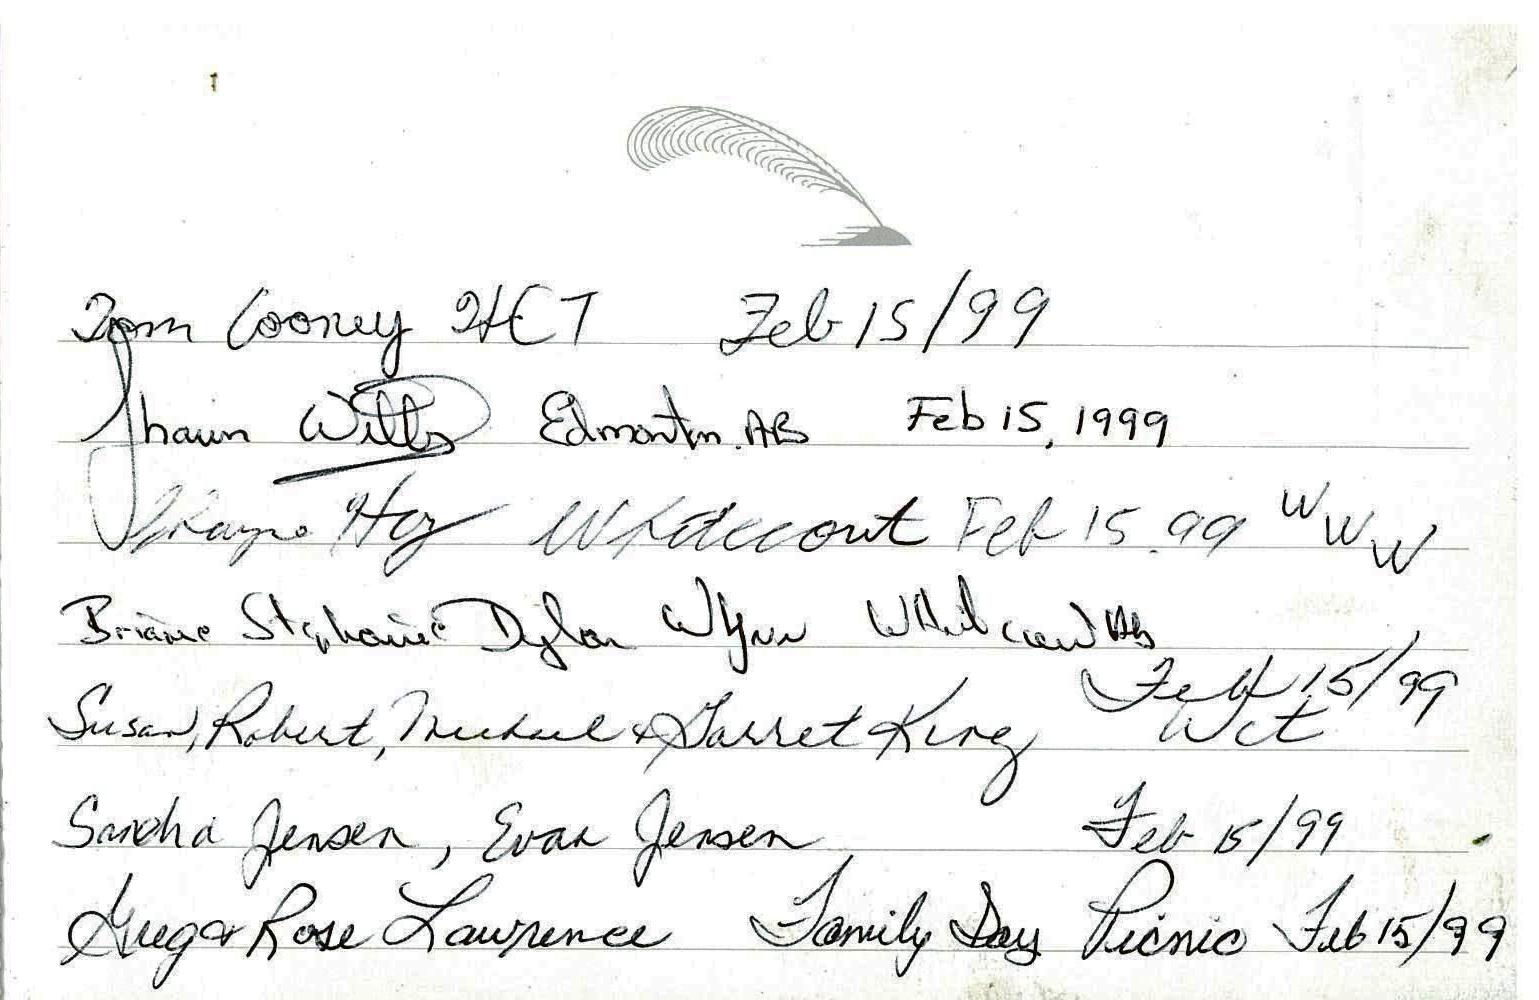 Tom Cooney HCT Feb 15/99
Shaun Wills Edmonton. AB Feb 15, 1999
Hoy Whitecourt Feb 15. 99 WWW
Briane Stephanie Dylan Wynn Whitecourt Ab
Feb 15/99
Susan, Robert, Michael & Garret King Wct
Sandra Jensen, Evan Jensen Feb 15/99
Greg & Rose Lawrence Family Day Picnic Feb 15/99